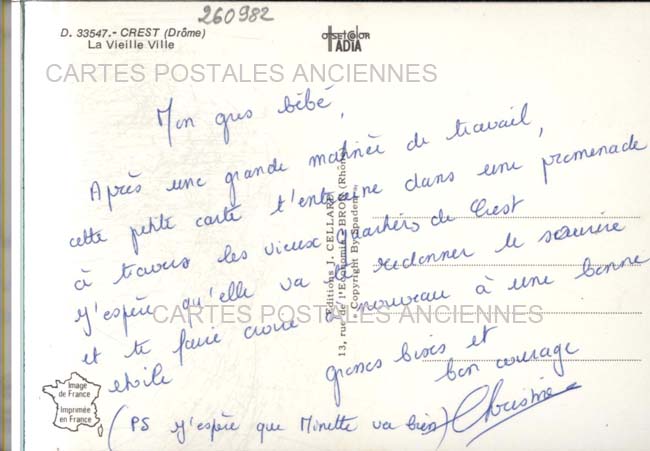 260982
D. 33547.- CREST (Drôme)
La Vieille Ville
OFFSET COLOR
IADIA
CARTES POSTALES ANCIENNES
Mon gros bébé,
Après une grande matinée de travail,
cette petite carte t'entraine dans une promenade
à travers les vieux quartiers de Crest
J'espère qu'elle va te redonner le sourire
et te faire croire à nouveau à une bonne
etoile
grosses bises et
bon courage
Christine
(PS J'espère que Minette va bien)
Editions J. CELLARD
13, rue de l'Economie, BRON (Rhône)
« Copyright by Spadem »
CARTES POSTALES ANCIENNES
Image
de France
Imprimée
en France